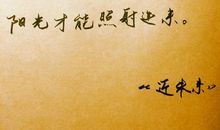 阳光才能照射进来。
《近未来》